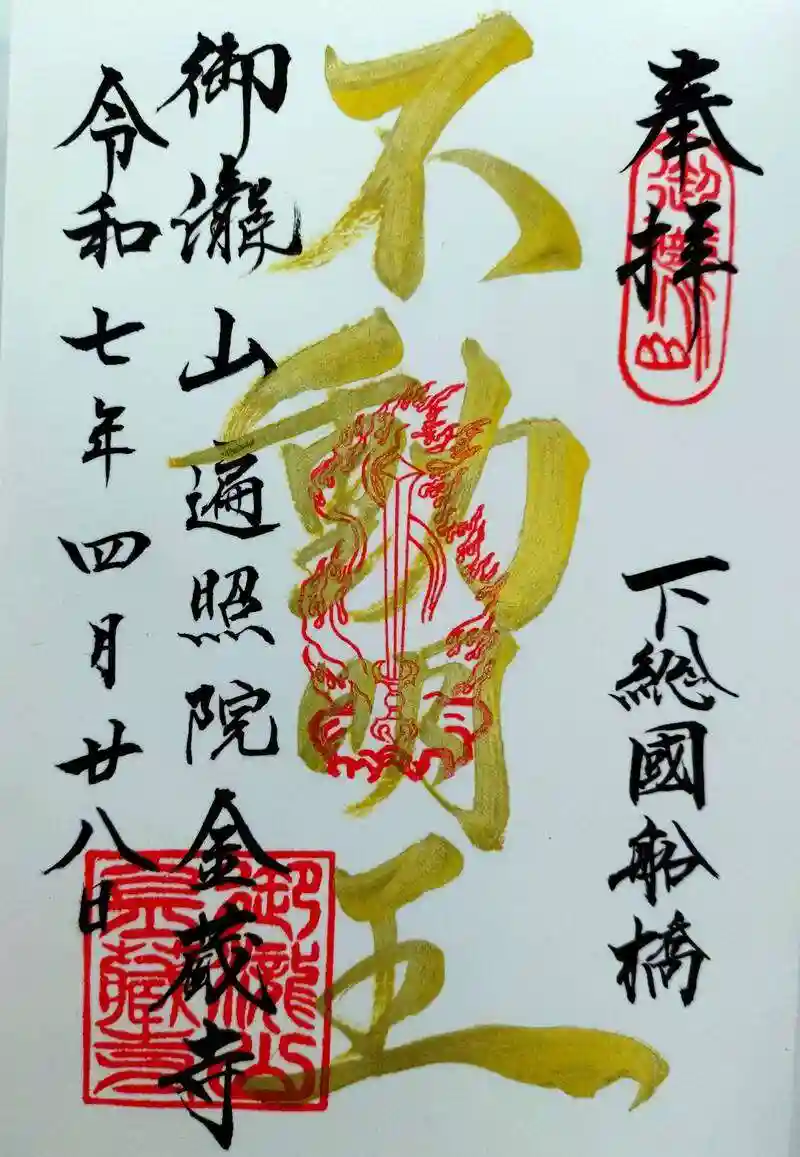 奉拝
下総國船橋
不動明王
御瀧山遍照院金蔵寺
令和七年四月廿八日
御瀧山
御瀧山金藏寺